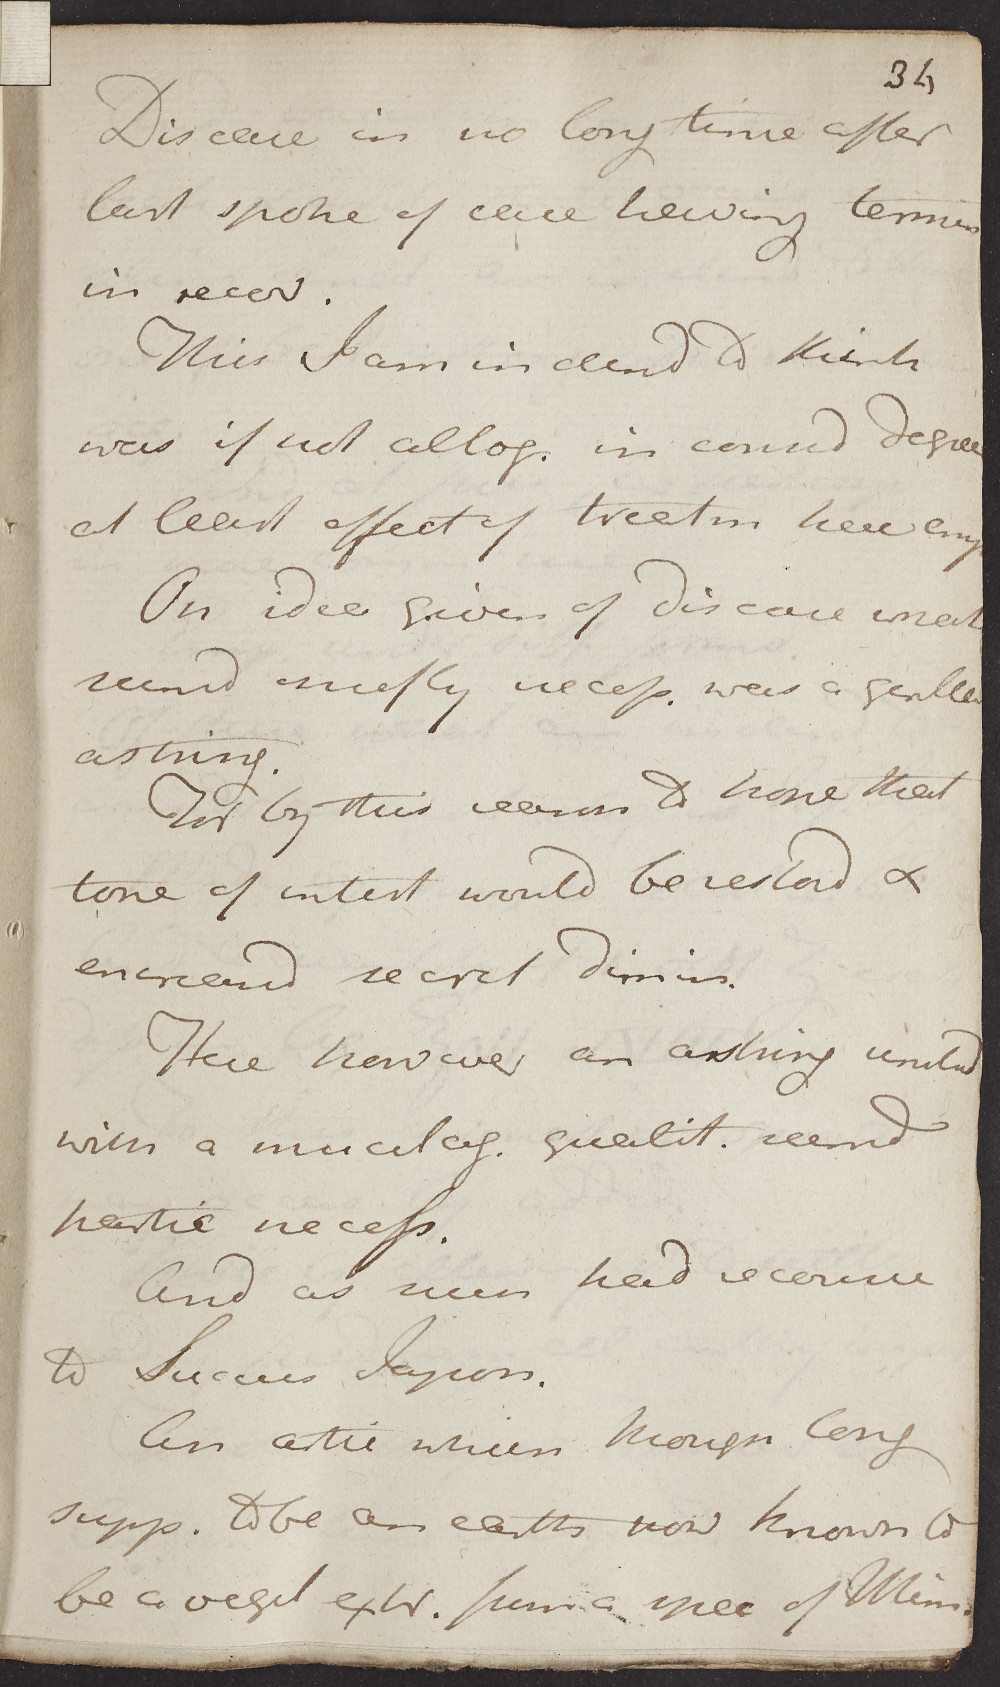 34
Disease in no long time after
last spoke of case having termin
in recov.
This I am inclend to think
was if not altog. in consid degree
at least effect of treatm here emp
On idea given of disease what
seemd chiefly necess. was a gentle
astring.
For by this reason to hope that
tone of intest would be restord &
encreasd secret dimin.
Here however an astring united
with a mucilag. qualit. seemd
partic necess.
And as such had recourse
to Succus Japon.
An artic which though long
supp. to be an earth now known to
be a veget extr. from a spec of Mim.